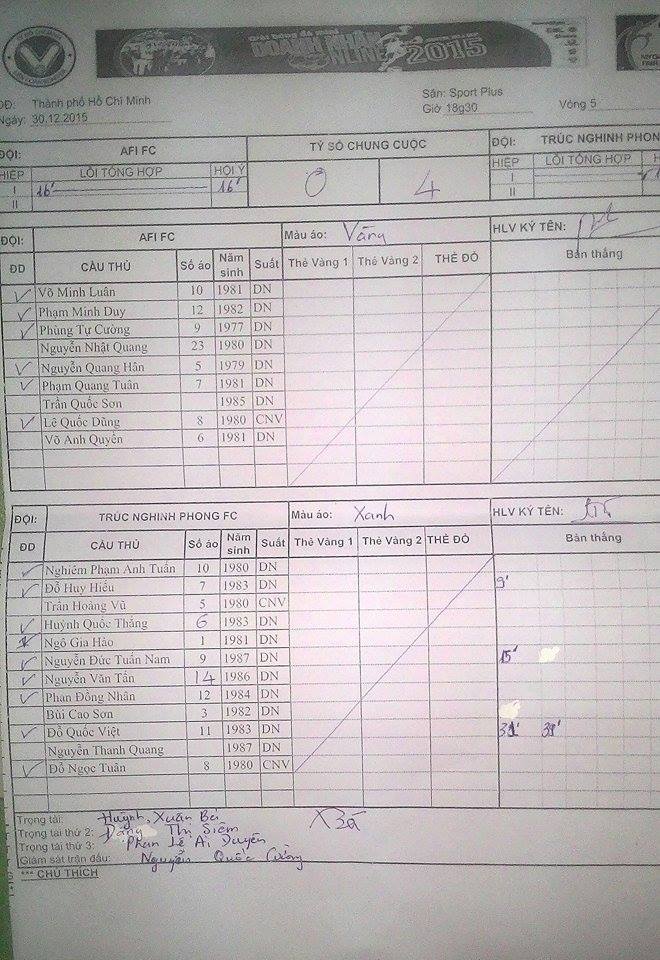 Giải bóng đá mini
DOANH NHÂN
ONLINE 2015
ĐĐ: Thành phố Hồ Chí Minh Sân: Sport Plus
Ngày: 30.12.2015 Giờ 18g30 Vòng 5
ĐỘI: AFI FC TỶ SỐ CHUNG CUỘC ĐỘI: TRÚC NGHINH PHONG
HIỆP LỖI TỔNG HỢP HỘI Ý 0 4 HIỆP LỖI TỔNG HỢP H
I 16' 16' I
II II
ĐỘI: AFI FC Màu áo: Vàng HLV KÝ TÊN:
ĐD CẦU THỦ Số áo Năm sinh Suất Thẻ Vàng 1 Thẻ Vàng 2 THẺ ĐỎ Bàn thắng
Võ Minh Luân 10 1981 DN
Phạm Minh Duy 12 1982 DN
Phùng Tự Cường 9 1977 DN
Nguyễn Nhật Quang 23 1980 DN
Nguyễn Quang Hân 5 1979 DN
Phạm Quang Tuân 7 1981 DN
Trần Quốc Sơn 1985 DN
Lê Quốc Dũng 8 1980 CNV
Võ Anh Quyền 6 1981 DN
ĐỘI: TRÚC NGHINH PHONG FC Màu áo: Xanh HLV KÝ TÊN:
ĐD CẦU THỦ Số áo Năm sinh Suất Thẻ Vàng 1 Thẻ Vàng 2 THẺ ĐỎ Bàn thắng
Nghiêm Phạm Anh Tuấn 10 1980 DN
Đỗ Huy Hiếu 7 1983 DN 9'
Trần Hoàng Vũ 5 1980 CNV
Huỳnh Quốc Thắng 6 1983 DN
Ngô Gia Hào 1 1981 DN
Nguyễn Đức Tuấn Nam 9 1987 DN 15'
Nguyễn Văn Tấn 14 1986 DN
Phan Đồng Nhân 12 1984 DN
Bùi Cao Sơn 3 1982 DN
Đỗ Quốc Việt 11 1983 DN
Nguyễn Thanh Quang 1987 DN
Đỗ Ngọc Tuân 8 1980 CNV
Trọng tài: Huỳnh Xuân Bá
Trọng tài thứ 2: Đặng Thị Siêm
Trọng tài thứ 3: Phan Lê Ái Duyên
Giám sát trận đấu: Nguyễn Quốc Cường
*** CHÚ THÍCH